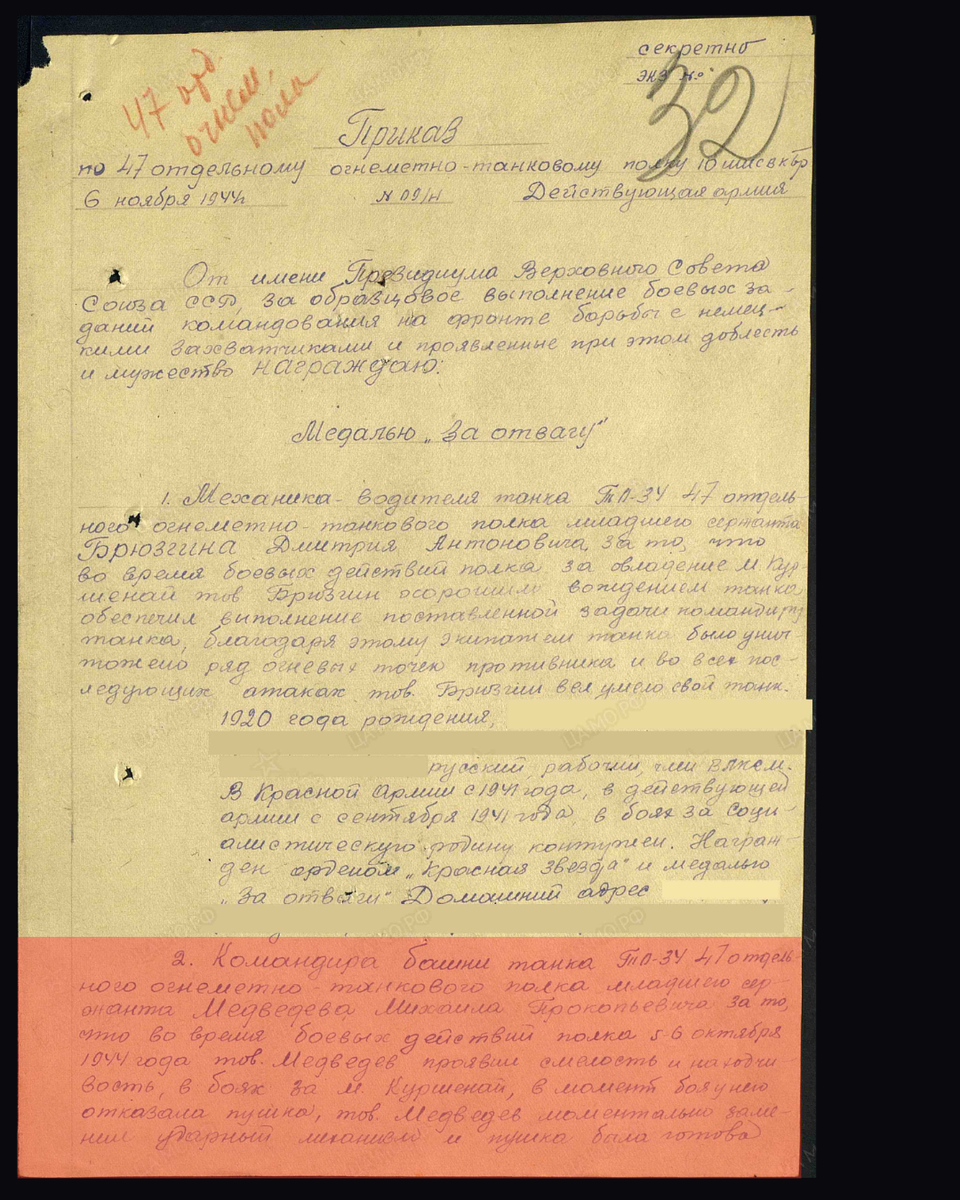 секретно
экз №
47 отд.
огнем.
полк
32
Приказ
по 47 отдельному огнеметно-танковому полку 10
6 ноября 1944г N 09/н Действующая армия
От имени Президиума Верховного Совета
Союза ССР, за образцовое выполнение боевых за-
даний командования на фронте борьбы с немец-
кими захватчиками и проявленные при этом доблесть
и мужество награждаю:
Медалью „За отвагу"
1. Механика-водителя танка ТО-34 47 отдель-
ного огнеметно-танкового полка младшего сержанта
Брюзгина Дмитрия Антоновича, за то, что
во время боевых действий полка за овладение м. Кур-
шенай тов. Брюзгин хорошим вождением танка
обеспечил выполнение поставленной задачи командиру
танка, благодаря этому экипажем танка было унич-
тожено ряд огневых точек противника и во всех пос-
ледующих атаках тов. Брюзгин вел умело свой танк.
1920 года рождения,
русский, рабочий, член ВЛКСМ.
В Красной Армии с 1941 года, в действующей
армии с сентября 1941 года, в боях за Соци-
алистическую родину контужен. Награж-
ден орденом „Красная Звезда" и медалью
„За отвагу" Домашний адрес
2. Командира башни танка ТО-34 47 отдель-
ного огнеметно-танкового полка младшего сер-
жанта Медведева Михаила Прокопьевича за то,
что во время боевых действий полка 5-6 октября
1944 года тов. Медведев проявил смелость и находчи-
вость, в боях за м. Куршенай, в момент боя у него
отказала пушка, тов. Медведев моментально заме-
нил ударный механизм и пушка была готова